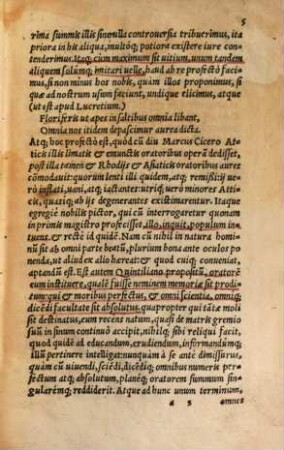 5
rima summis illis sine ulla controversia tribuerimus, ita
priora in his aliqua, multoq; potiora existere iure con
tenderimus. Atq; cum maximum sit vitium, unum tandem
aliquem solumq; imitari uelle, haud ab re profecto faci
mus, si non minus hos nobis, quàm illos proponimus, si
quæ ad nostrum usum faciunt, undique elicimus, atque
(ut est apud Lucretium.)
Floriferis ut apes in saltibus omnia libant,
Omnia nos itidem depascimur aurea dicta.
Atq; hoc profecto est, quod cũ diu Marcus Cicero At
ticis illis limatis & emunctis oratoribus operã dedisset,
post illa tamen & Rhodijs & Asiaticis oratoribus aures
cõmodauit: quorum lenti illi quidem, atq; remissi: his ue
rò inflati, uani, atq; iactantes: utriq; uero minores Atti
cis, quatiq; ab ijs degenerantes existimarentur. Itaque
egregiè nobilis pictor, qui cũ interrogaretur quonam
in primis magistro profecisset, Illo, inquit, populum in
tuens. & rectè id quidẽ. Nam cũ nihil in natura homi
nũ sit ab omni parte beatũ, plurium bona ante oculos po
nenda, ut aliud ex alio hereat: & quod cuiq; conueniat,
aptandũ est. Est autem Quintiliano propositũ, oratorẽ
eum instituere, qualẽ fuisse neminem memoriæ sit prodi
tum: qui & moribus perfectus, & omni scientia, omniq;
dicẽdi facultate sit absolutus. quapropter quũ tãtæ mo
li sit destinatus, eum recens natum, quasi de matris gremio
suũ in sinum continuò accipit, nihilq; sibi reliqui facit,
quod quidẽ ad educandum, erudiendum, informandumq;
illũ pertinere intelligat: nunquàm à se ante dimissurus,
quàm cũ uiuendi, sciẽdi, dicẽdiq; omnibus numeris per
fectum atq; absolutum, planeq; oratorem summum sin
gularemq; reddiderit. Atque ad hunc unum terminum,
a 5 omnes